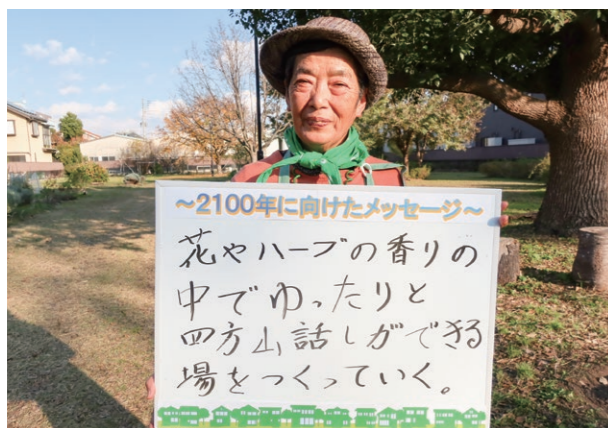 ～2100年に向けたメッセージ～
花やハーブの香りの
中でゆったりと
四方山話しができる
場をつくっていく。